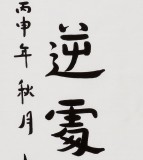 逆處
丙申年秋月